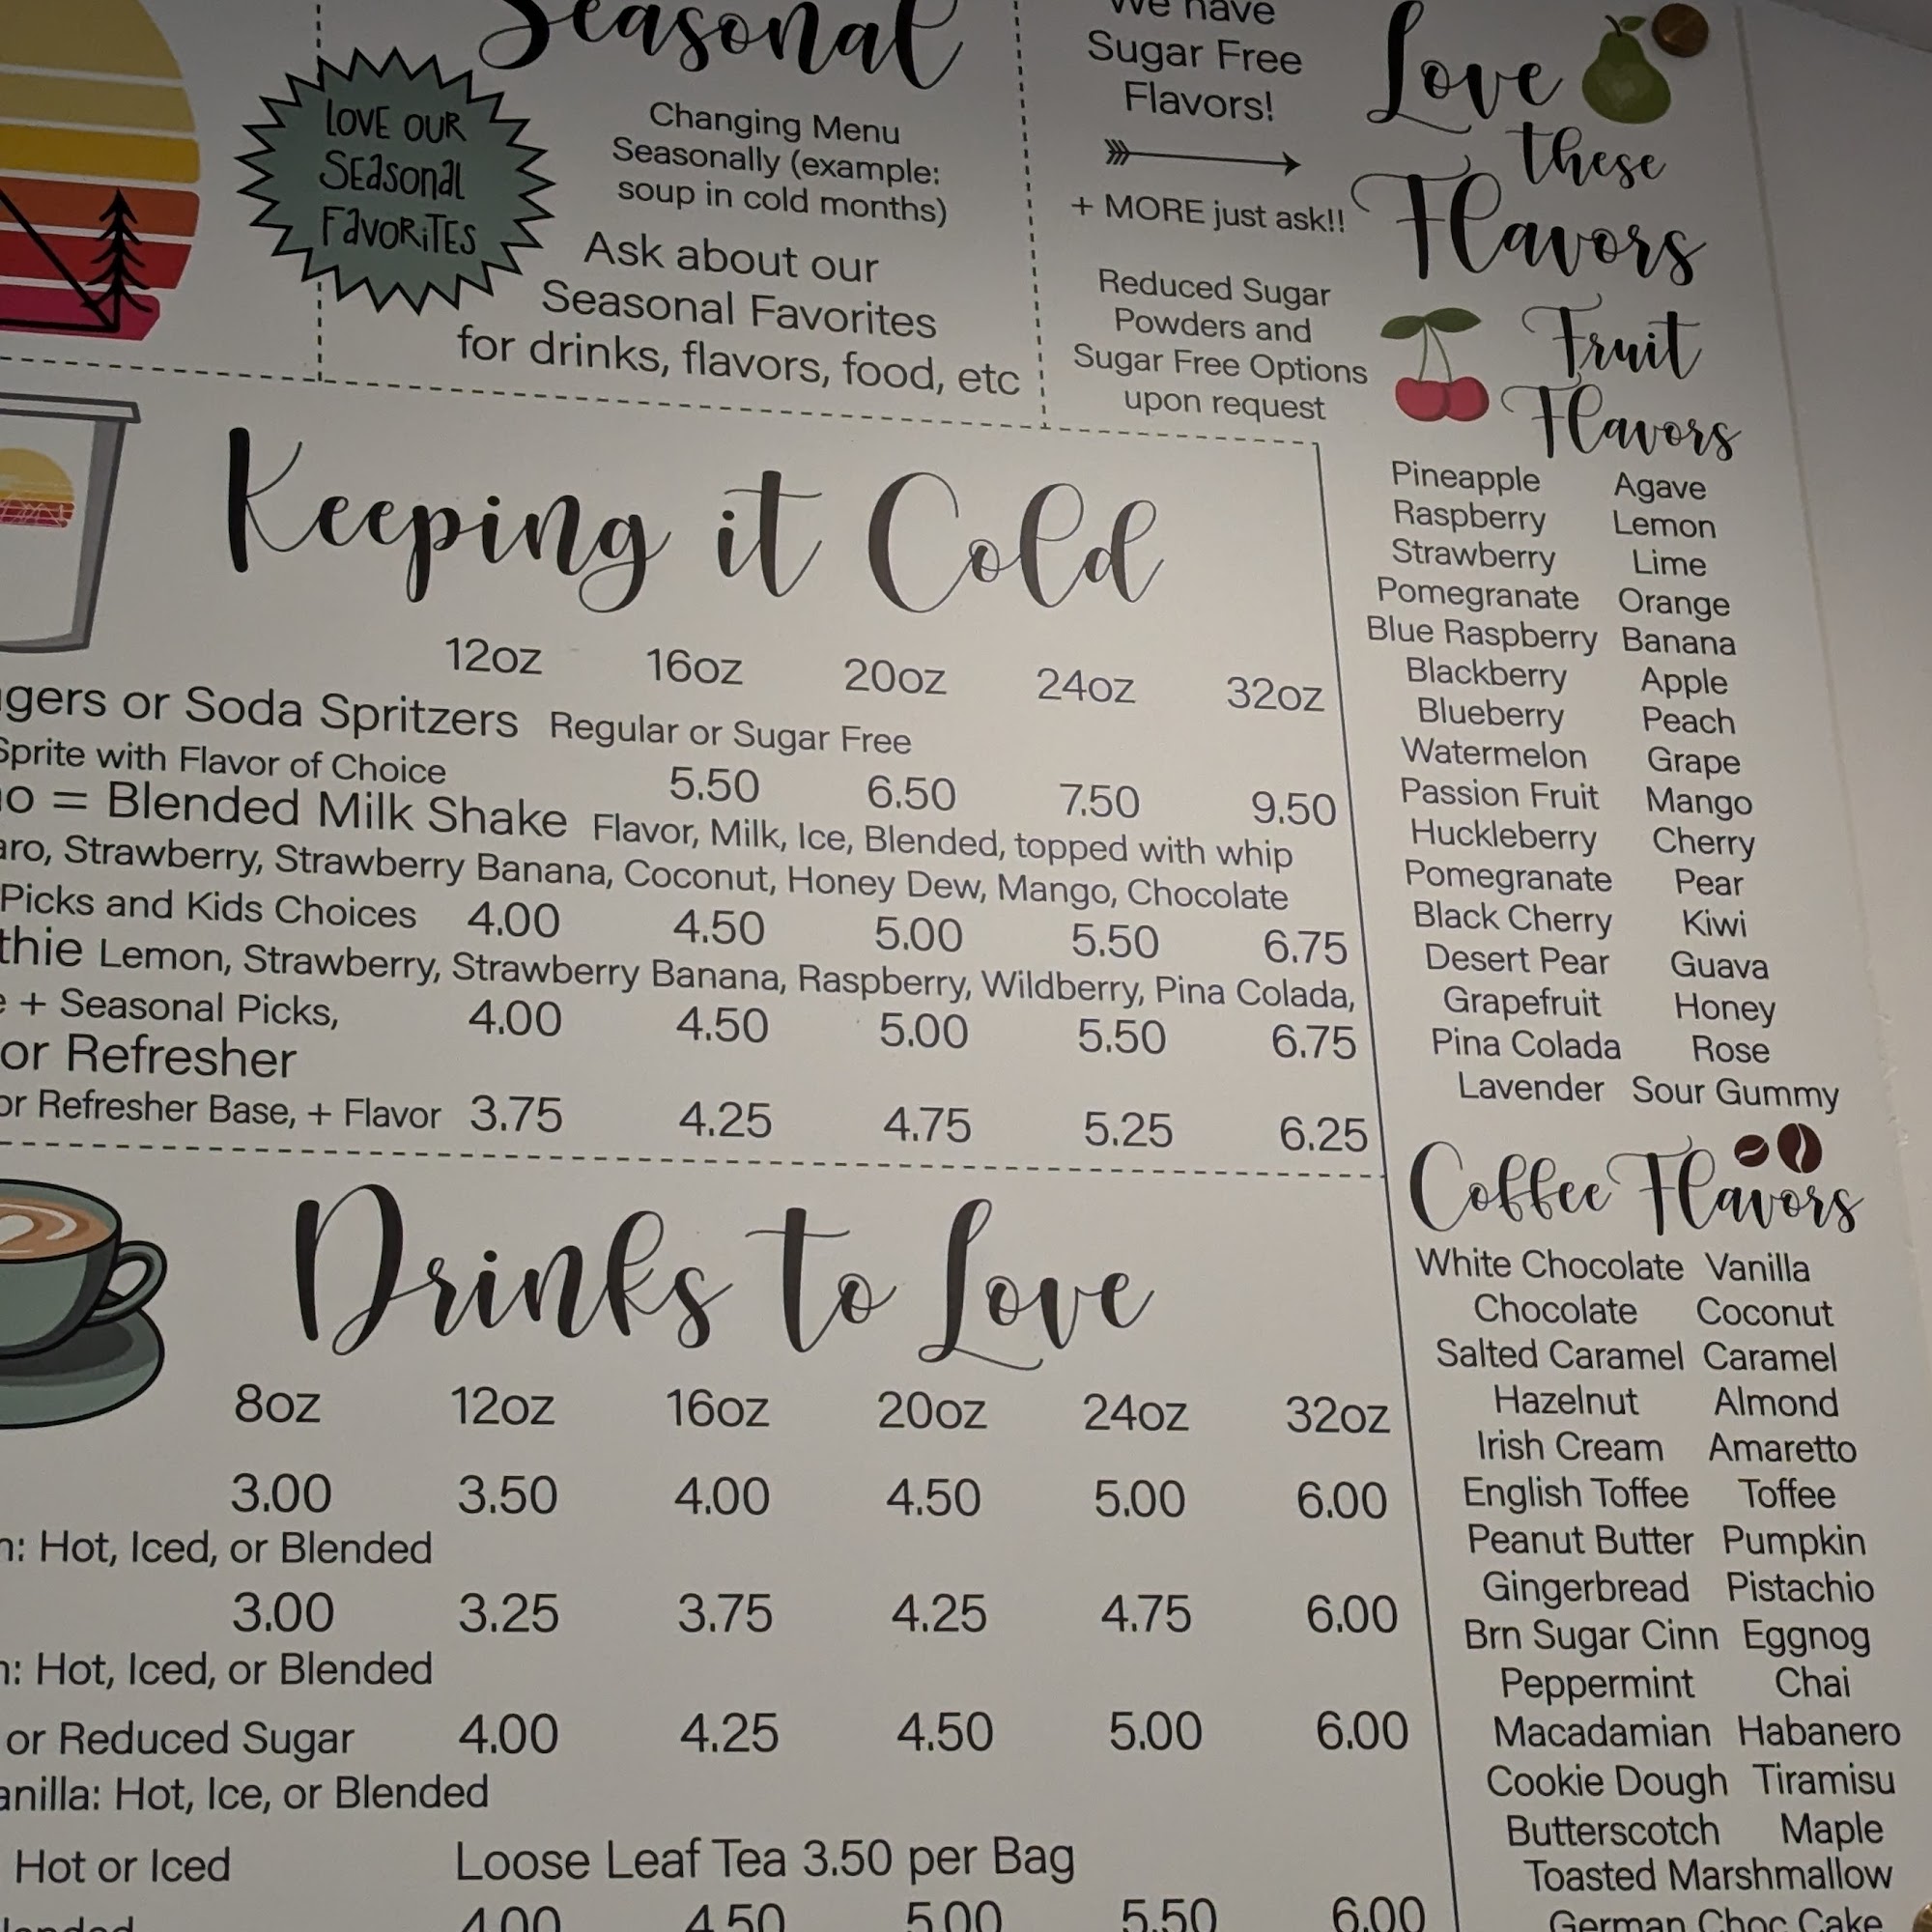 Seasonal
LOVE OUR
SEasonal
FavoRiTES
Changing Menu
Seasonally (example:
soup in cold months)
Ask about our
Seasonal Favorites
for drinks, flavors, food, etc
We have
Sugar Free
Flavors!
+ MORE just ask!!
Reduced Sugar
Powders and
Sugar Free Options
upon request
Keeping it Cold
12oz 16oz 20oz 24oz 32oz
or Soda Spritzers Regular or Sugar Free
Sprite with Flavor of Choice 5.50 6.50 7.50 9.50
= Blended Milk Shake Flavor, Milk, Ice, Blended, topped with whip
Strawberry, Strawberry Banana, Coconut, Honey Dew, Mango, Chocolate
Picks and Kids Choices 4.00 4.50 5.00 5.50 6.75
Lemon, Strawberry, Strawberry Banana, Raspberry, Wildberry, Pina Colada,
+ Seasonal Picks, 4.00 4.50 5.00 5.50 6.75
or Refresher
or Refresher Base, + Flavor 3.75 4.25 4.75 5.25 6.25
Drinks to Love
8oz 12oz 16oz 20oz 24oz 32oz
3.00 3.50 4.00 4.50 5.00 6.00
Hot, Iced, or Blended
3.00 3.25 3.75 4.25 4.75 6.00
Hot, Iced, or Blended
or Reduced Sugar 4.00 4.25 4.50 5.00 6.00
Hot, Ice, or Blended
Hot or Iced Loose Leaf Tea 3.50 per Bag
4.00 4.50 5.00 5.50 6.00
Love
these
Flavors
Fruit
Flavors
Pineapple Agave
Raspberry Lemon
Strawberry Lime
Pomegranate Orange
Blue Raspberry Banana
Blackberry Apple
Blueberry Peach
Watermelon Grape
Passion Fruit Mango
Huckleberry Cherry
Pomegranate Pear
Black Cherry Kiwi
Desert Pear Guava
Grapefruit Honey
Pina Colada Rose
Lavender Sour Gummy
Coffee Flavors
White Chocolate Vanilla
Chocolate Coconut
Salted Caramel Caramel
Hazelnut Almond
Irish Cream Amaretto
English Toffee Toffee
Peanut Butter Pumpkin
Gingerbread Pistachio
Brn Sugar Cinn Eggnog
Peppermint Chai
Macadamian Habanero
Cookie Dough Tiramisu
Butterscotch Maple
Toasted Marshmallow
German Choc Cake